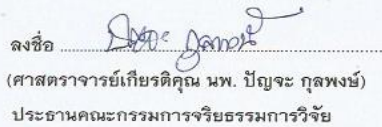 ลงชื่อ ปัญจะ กุลพงษ์
(ศาสตราจารย์เกียรติคุณ นพ. ปัญจะ กุลพงษ์)
ประธานคณะกรรมการจริยธรรมการวิจัย